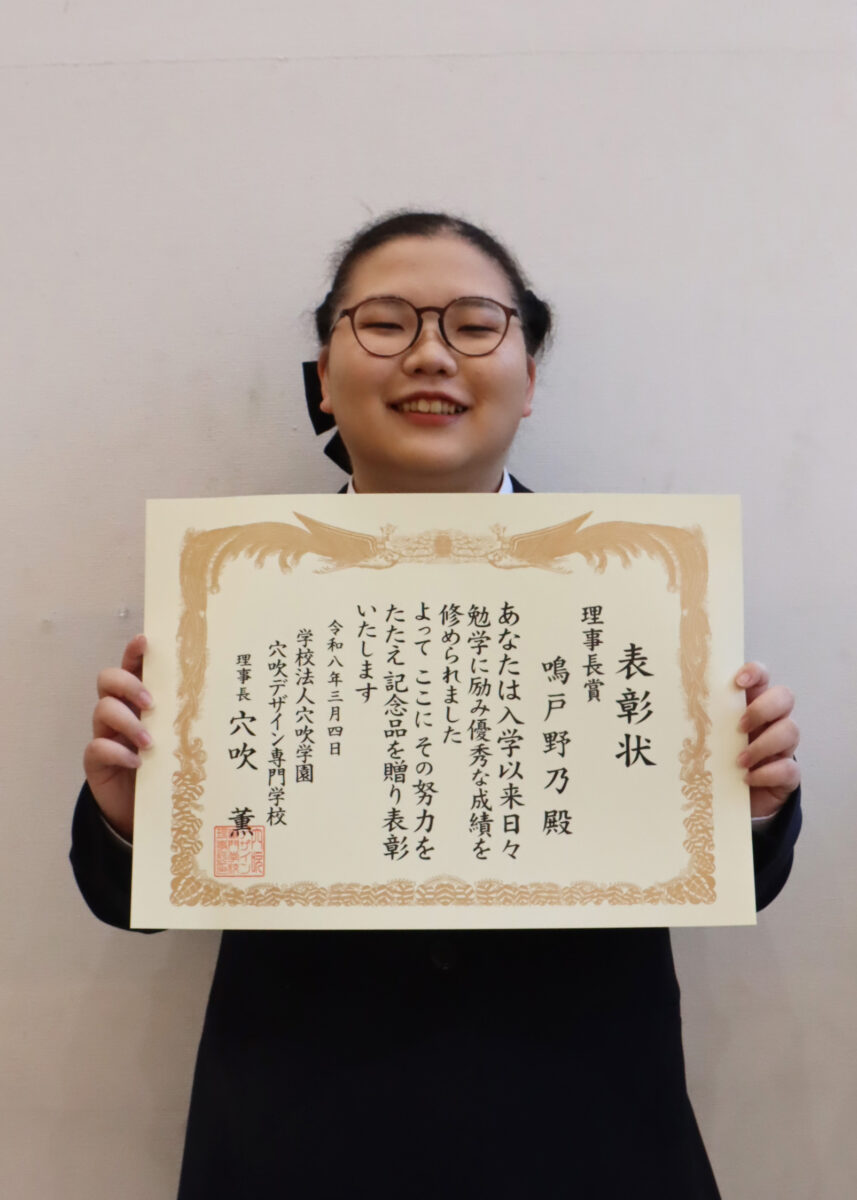 表彰状
理事長賞
鳴戸野乃 殿
あなたは入学以来日々
勉学に励み優秀な成績を
修められました
よって ここに その努力を
たたえ 記念品を贈り表彰
いたします
令和八年三月四日
学校法人穴吹学園
穴吹デザイン専門学校
理事長 穴吹 薫